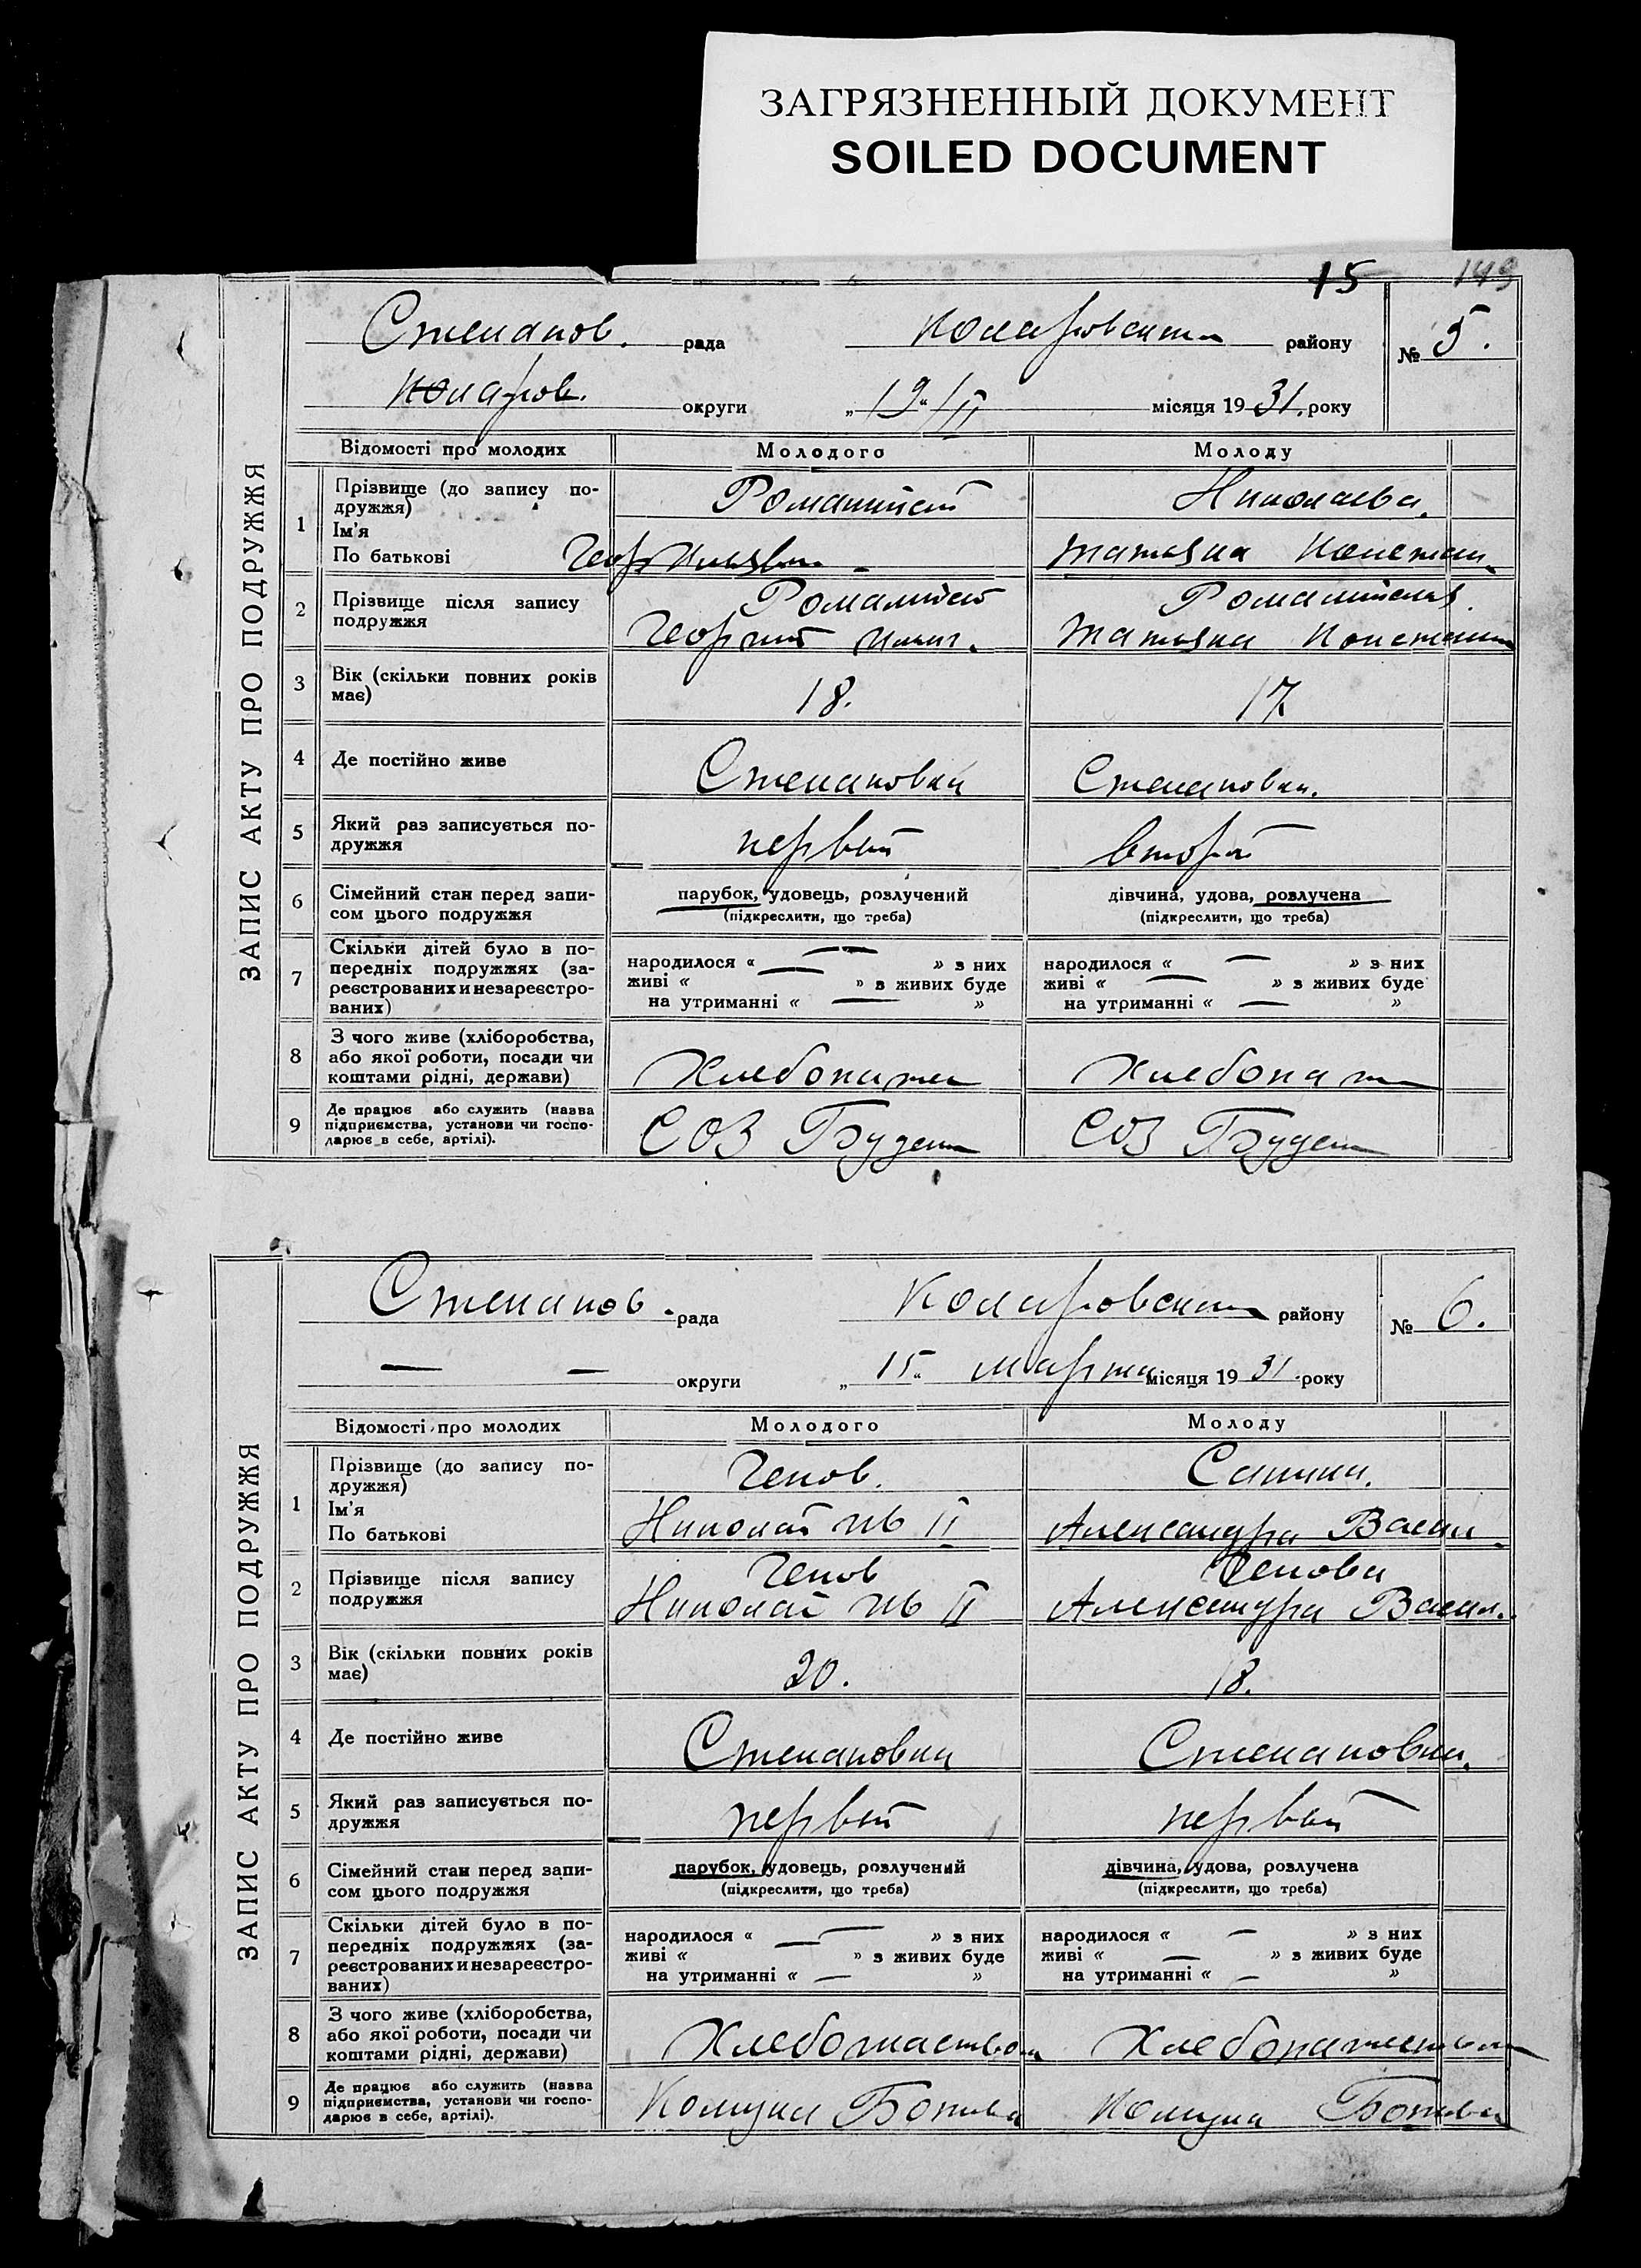 ЗАГРЯЗНЕННЫЙ ДОКУМЕНТ
SOILED DOCUMENT
15 149
ЗАПИС АКТУ ПРО ПОДРУЖЖЯ
Степанов. рада Коларовского району № 5.
Коларов. округи „19“/II місяця 1931. року
Відомості про молодих Молодого Молоду
1 Прізвище (до запису по-
дружжя) Николаева.
Ім'я
По батькові Геор Татьяна Констан.
2 Прізвище після запису
подружжя Георгий Ильич. Татьяна Констант
3 Вік (скільки повних років
має) 18. 17
4 Де постійно живе Степановка Степановка.
5 Який раз записується по-
дружжя первый второй
6 Сімейний стан перед запи-
сом цього подружжя
парубок, удовець, розлучений дівчина, удова, розлучена
(підкреслити, що треба) (підкреслити, що треба)
7 Скільки дітей було в по-
передніх подружжях (за-
реєстрованих и незареєстро-
ваних)
народилося « — » з них народилося « — » з них
живі « — » з живих буде живі « — » з живих буде
на утриманні « — » на утриманні « — »
8 З чого живе (хліборобства,
або якої роботи, посади чи
коштами рідні, держави) Хлебопаш Хлебопаш
9 Де працює або служить (назва
підприємства, установи чи госпо-
дарює в себе, артілі). СОЗ СОЗ
ЗАПИС АКТУ ПРО ПОДРУЖЖЯ
Степанов. рада Коларовского району № 6.
— — округи „15“ марта місяця 1931. року
Відомості про молодих Молодого Молоду
1 Прізвище (до запису по-
дружжя) Ченов.
Ім'я
По батькові Николай Ив II Александра Васил.
2 Прізвище після запису
подружжя Ченов Ченова
Николай Ив II Александра Васил.
3 Вік (скільки повних років
має) 20. 18.
4 Де постійно живе Степановка Степановка.
5 Який раз записується по-
дружжя первый первый
6 Сімейний стан перед запи-
сом цього подружжя
парубок, удовець, розлучений дівчина, удова, розлучена
(підкреслити, що треба) (підкреслити, що треба)
7 Скільки дітей було в по-
передніх подружжях (за-
реєстрованих и незареєстро-
ваних)
народилося « — » з них народилося « — » з них
живі « — » з живих буде живі « — » з живих буде
на утриманні « — » на утриманні « — »
8 З чого живе (хліборобства,
або якої роботи, посади чи
коштами рідні, держави) Хлебопашеством
9 Де працює або служить (назва
підприємства, установи чи госпо-
дарює в себе, артілі). Комуна Ботева Комуна Ботева